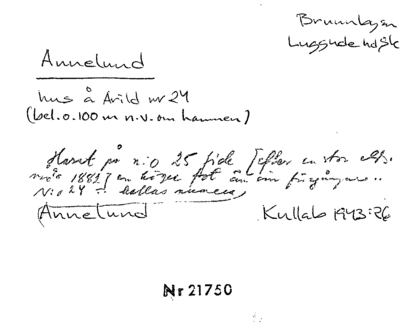 Brunnbysn
Luggude hd Sk
Annelund
hus å Arild nr 24
(bel. o. 100 m n.v. om hamnen)
Huset på n:o 25 fick [efter en stor elds-
1882] en högre fot än sin föregångare..
N:o 24 kallas numera
Annelund Kullab 1943:26
Nr 21750